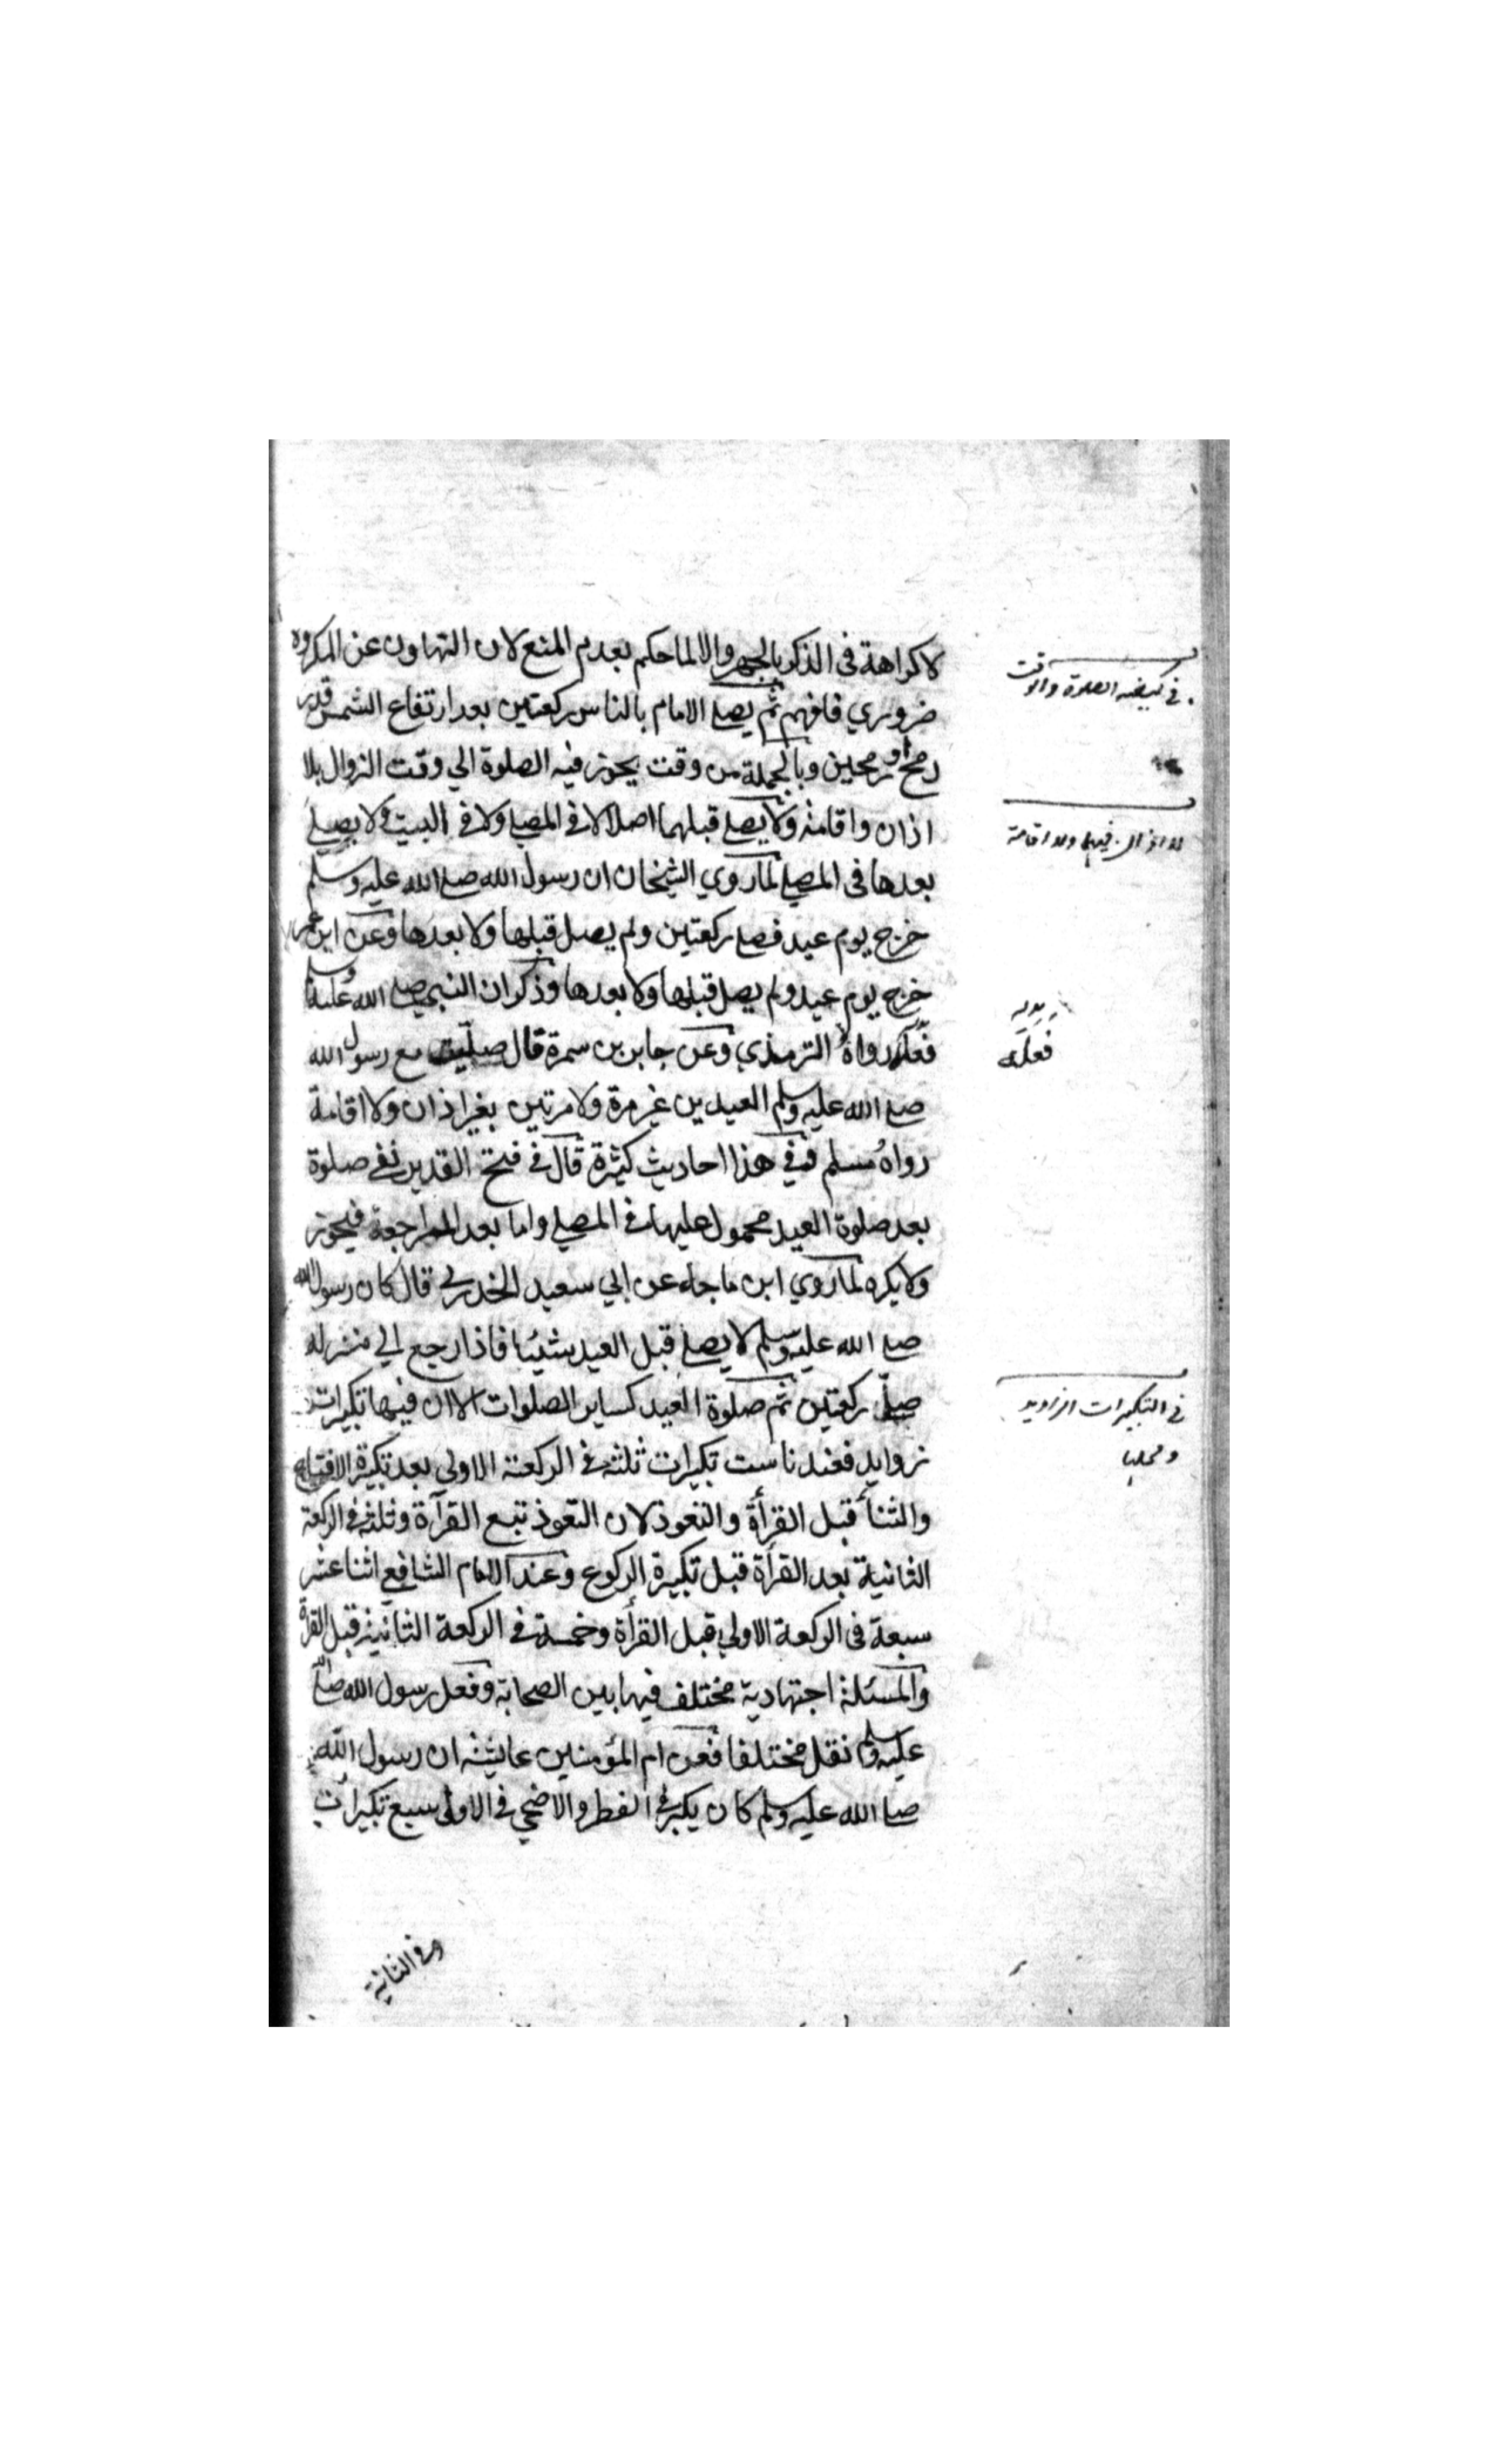 لا كراهة فى الذكر بالجهر والا لما حكم بعدم المنع لان التهاون عن المكروه
ضروري فافهم ثم يصلي الامام بالناس ركعتين بعد ارتفاع الشمس قدر
رمح او رمحين وبالجملة من وقت يجوز فيه الصلوة الي وقت الزوال بلا
اذان واقامة ولا يصلي قبلهما اصلا لا في المصلي ولا في البيت ولا يصلي
بعدها فى المصلي لما روي الشيخان ان رسول الله صلي الله عليه وسلم
خرج يوم عيد فصلي ركعتين ولم يصل قبلها ولا بعدها وعن ابن عمر
خرج يوم عيد ولم يصل قبلها ولا بعدها وذكر ان النبي صلي الله عليه وسلم
فعله رواه الترمذي وعن جابر بن سمرة قال صليت مع رسول الله
صلي الله عليه وسلم العيدين غير مرة ولا مرتين بغير اذان ولا اقامة
رواه مسلم وفي هذا احاديث كثيرة قال في فتح القدير نفي صلوة
بعد صلوة العيد محمول عليها في المصلي واما بعد المراجعة فيجوز
ولا يكره لما روي ابن ماجه عن ابي سعيد الخدري قال كان رسول الله
صلي الله عليه وسلم لا يصلي قبل العيد شيئا فاذا رجع الي منزله
صلي ركعتين ثم صلوة العيد كساير الصلوات الا ان فيها تكبيرات
زوايد فعندنا ست تكبيرات ثلثة في الركعة الاولي بعد تكبيرة الافتتاح
والثنأ قبل القرأة والتعوذ لان التعوذ تبع القرآة وثلثة في الركعة
الثانية بعد القرأة قبل تكبيرة الركوع وعند الامام الشافعي اثنا عشر
سبعة فى الركعة الاولي قبل القرأة وخمسة في الركعة الثانية قبل القرأة
والمسئلة اجتهادية مختلف فيها بين الصحابة وفعل رسول الله صلي الله
عليه وسلم نقل مختلفا فعن ام المؤمنين عايشة ان رسول الله
صلي الله عليه وسلم كان يكبر في الفطر والاضحي في الاولي سبع تكبيرات
وفي الثانية
في كيفية الصلوة والوقت
لا اذان فيها ولا اقامة
فعله
في التكبيرات الزوايد
ومحلها